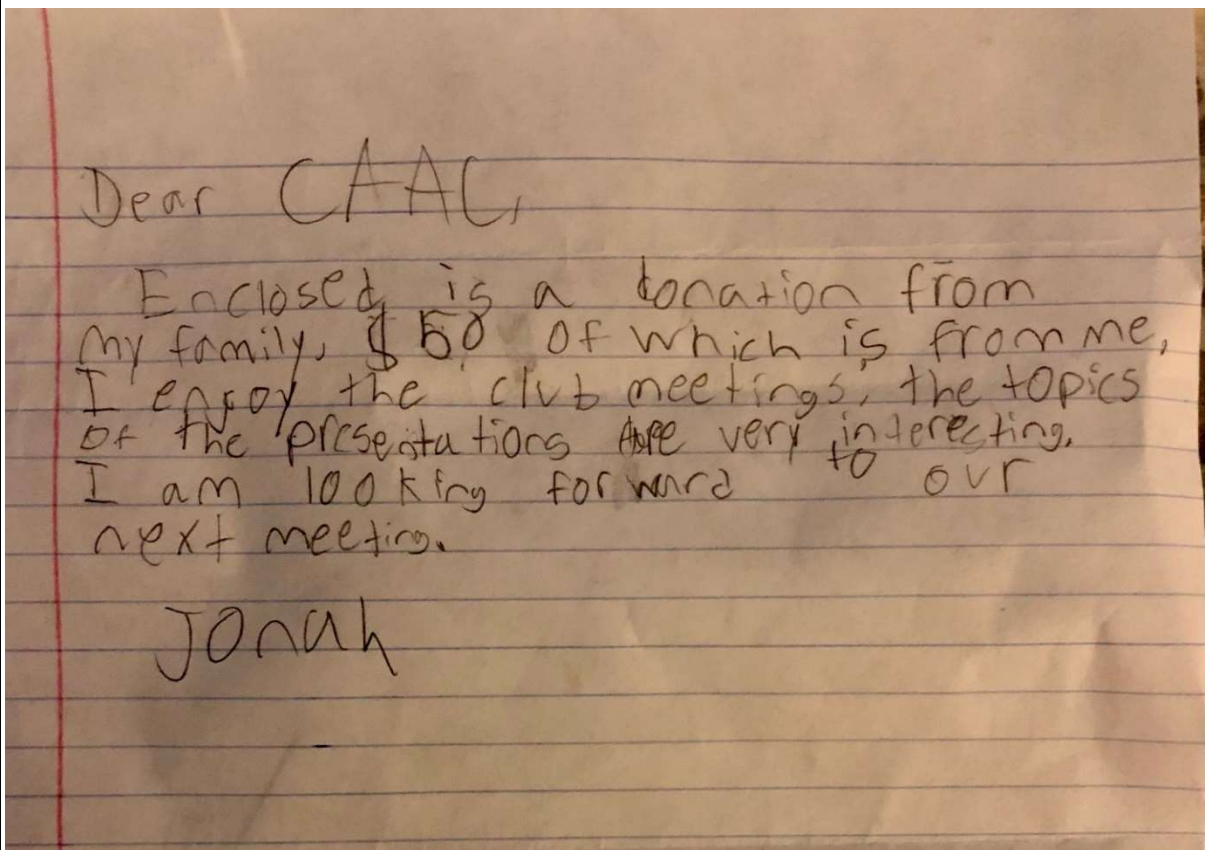 Dear CAAC,
Enclosed is a donation from
my family, $50 of which is from me,
I enjoy the club meetings, the topics
of the presentations are very interesting.
I am looking forward to our
next meeting.
Jonah